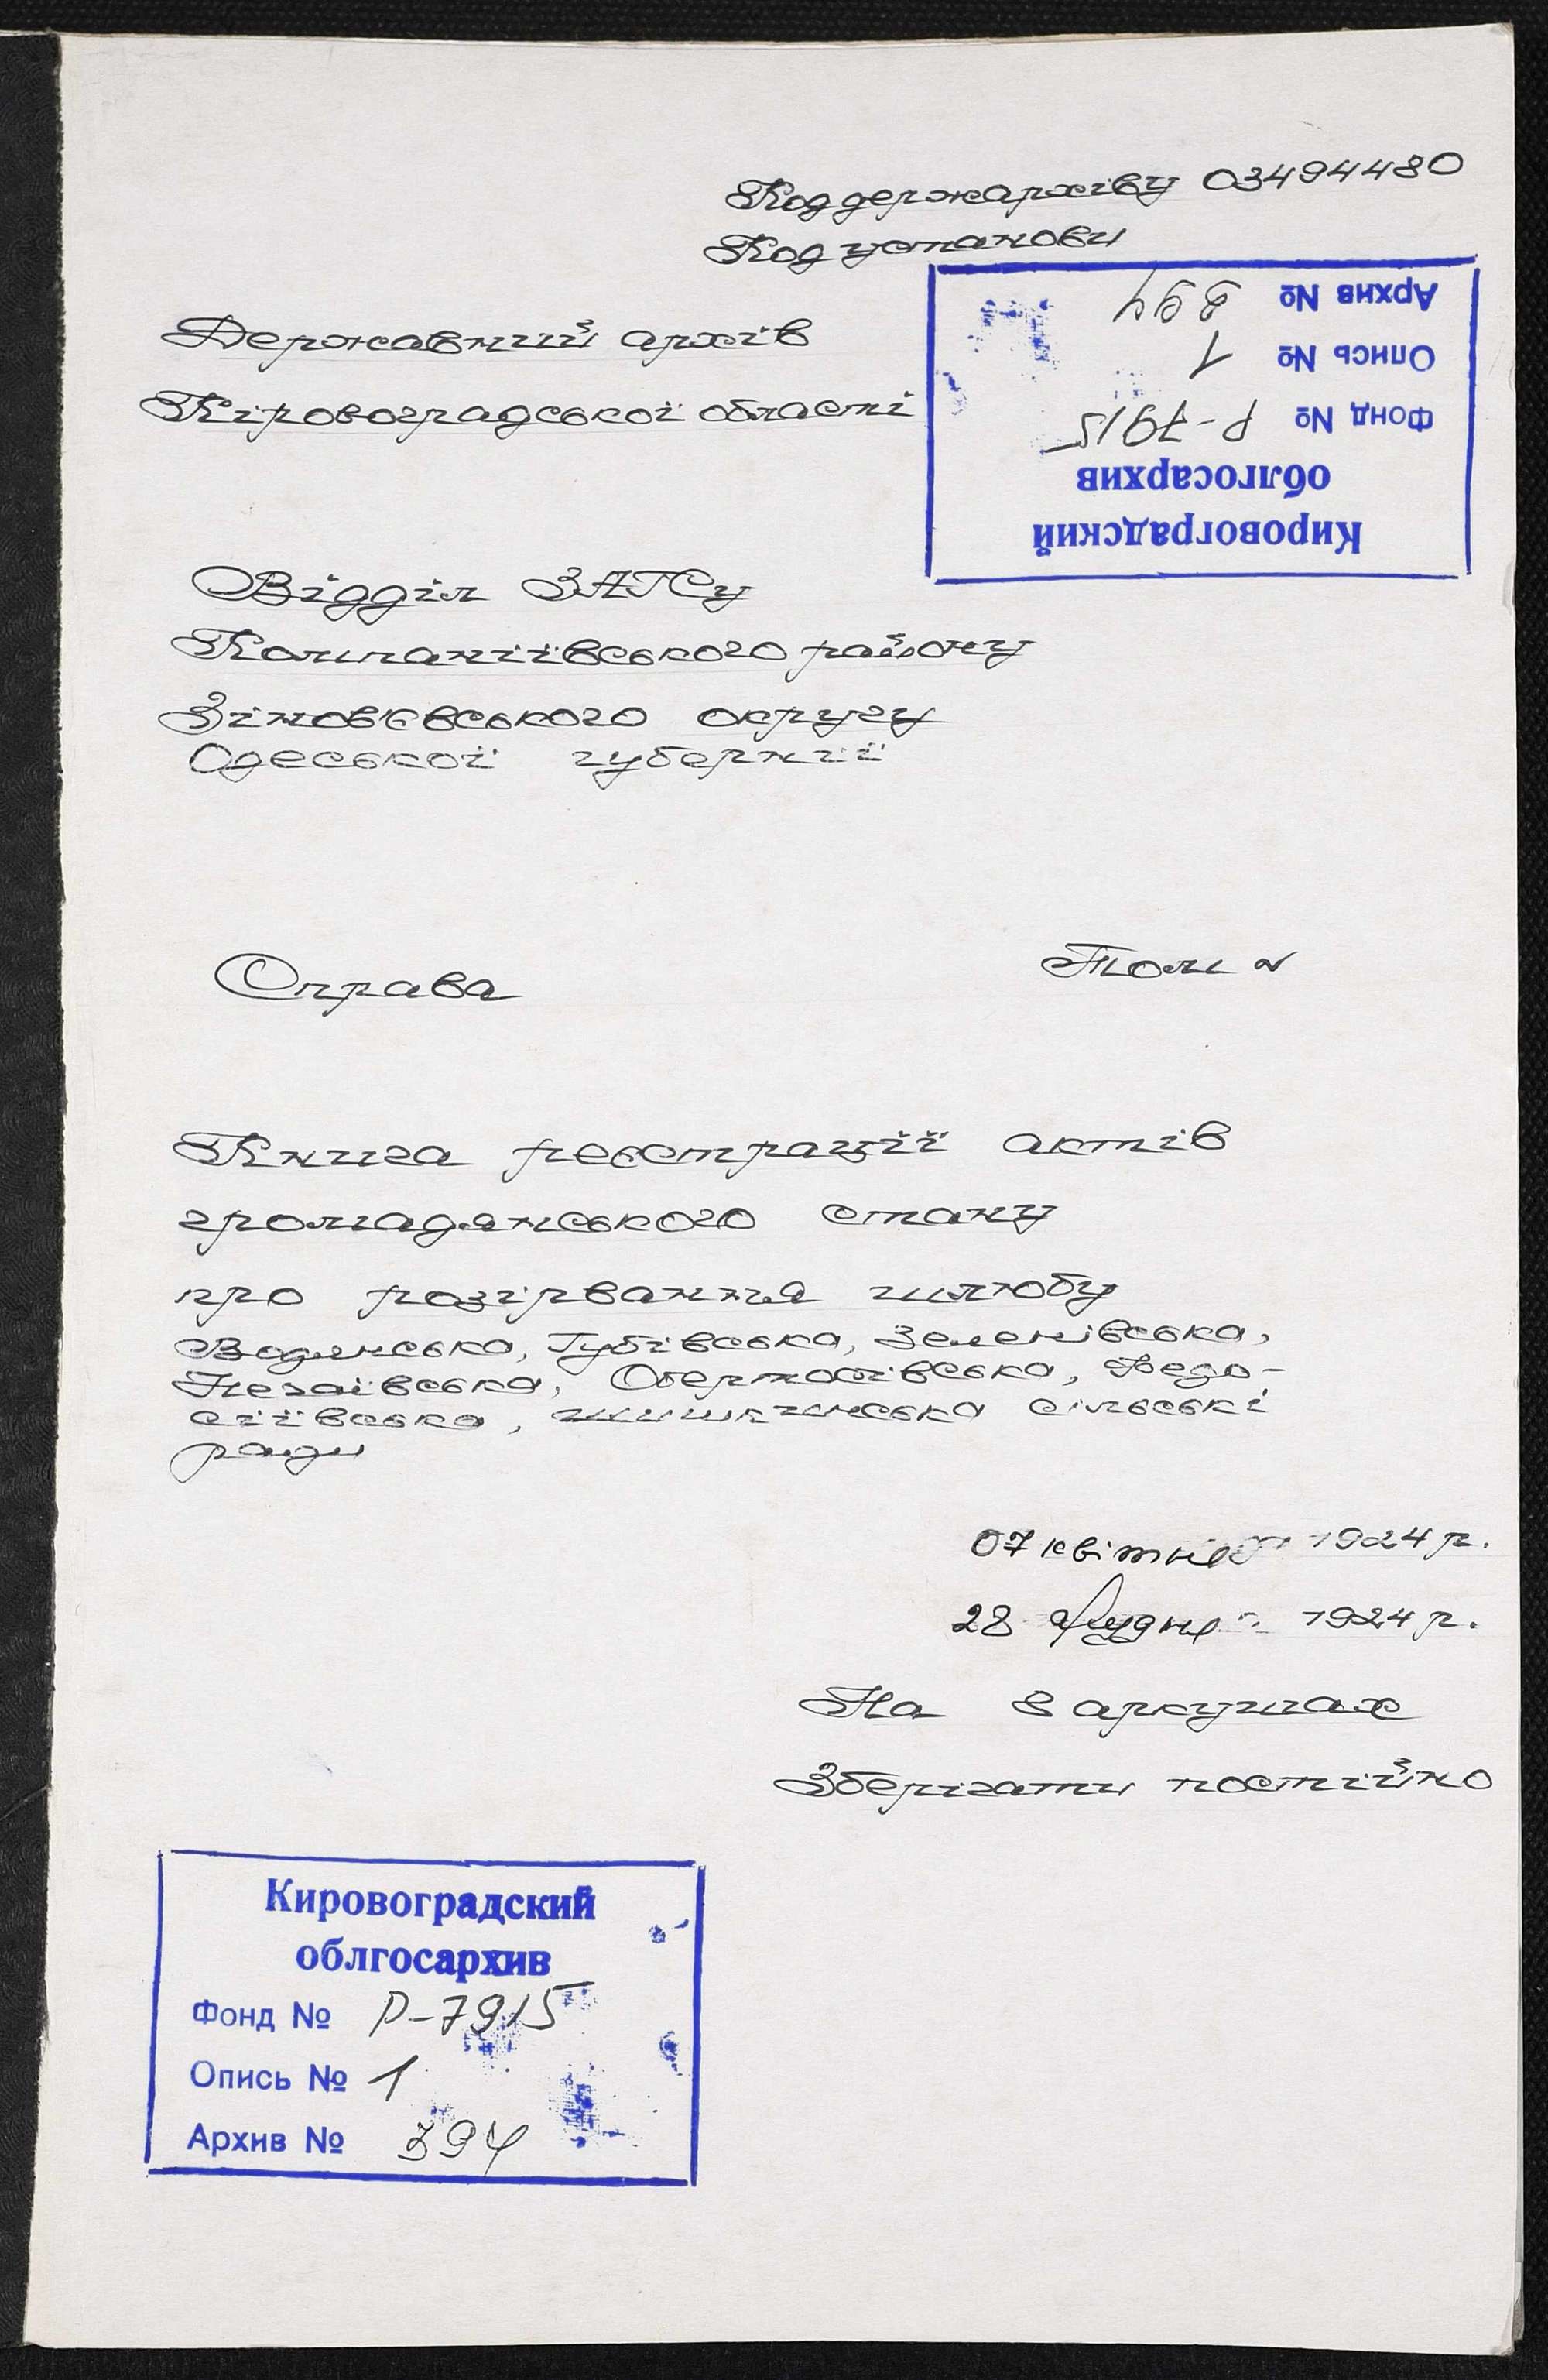 Код держархіву 03494480
Код установи
Державний архів
Кіровоградської області
Кировоградский
облгосархив
Фонд № Р-7915
Опись № 1
Архив № 394
Відділ ЗАГСу
Компаніївського району
Зінов'євського округу
Одеської губернії
Справа
Том №
Книга реєстрації актів
громадянського стану
про розірвання шлюбу
Водянська, Губівська, Зеленівська,
Нечаївська, Оберносівська, Федо-
сіївська, Шишкинська сільські
ради
07 квітня 1924 р.
28 грудня 1924 р.
На 8 аркушах
Зберігати постійно
Кировоградский
облгосархив
Фонд № Р-7915
Опись № 1
Архив № 394